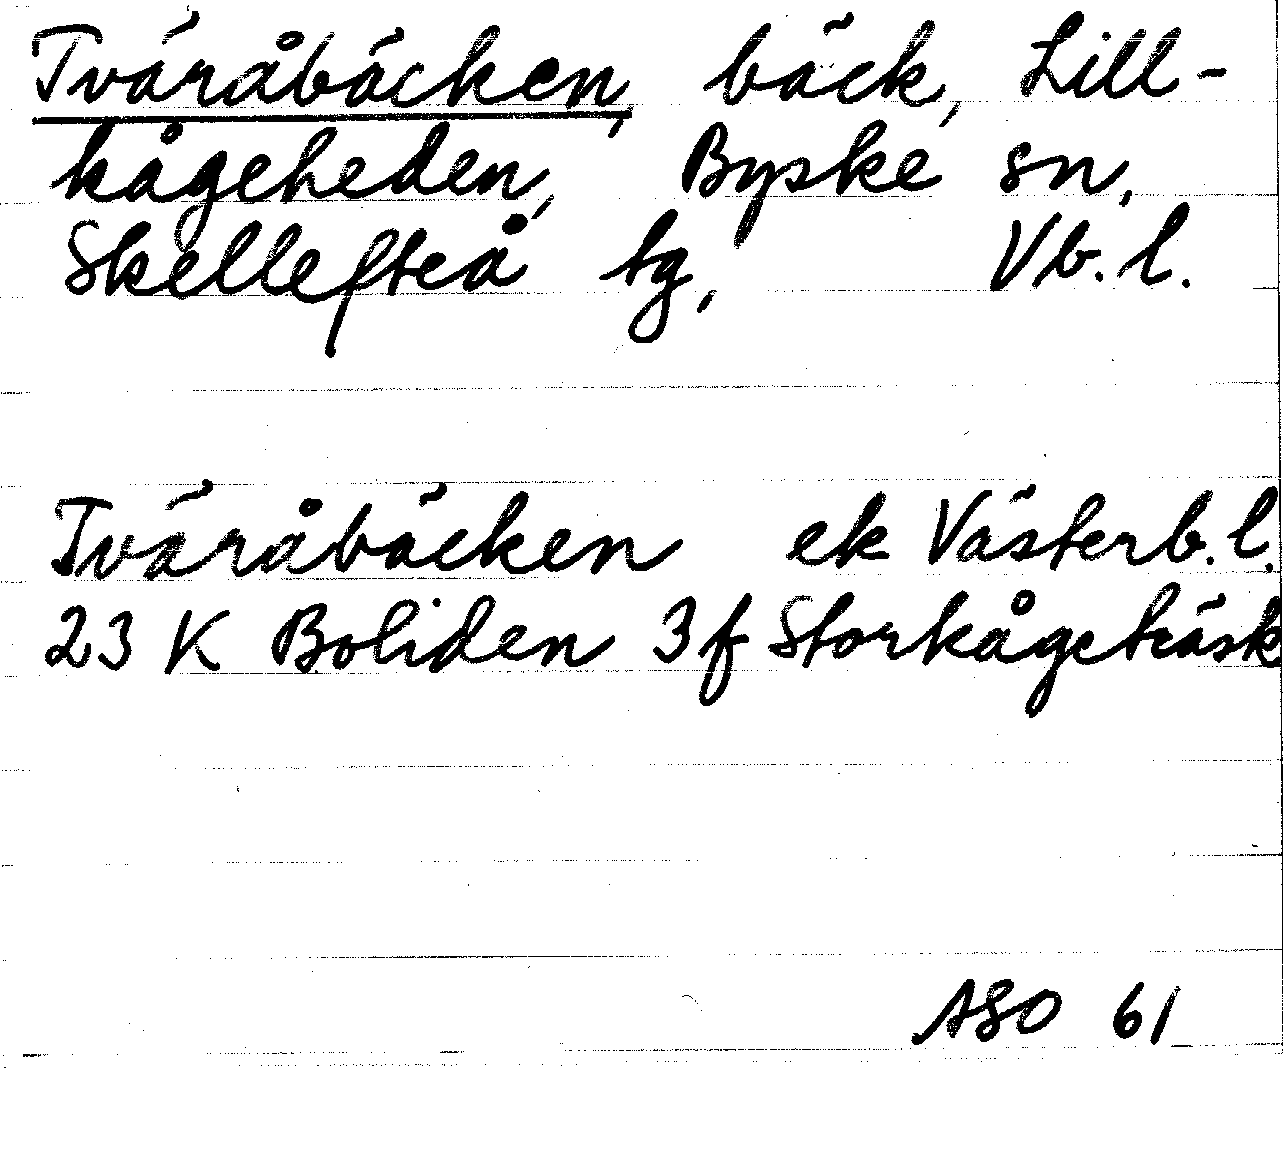 Tväråbäcken, bäck, Lill-
kågeheden, Byske sn,
Skellefteå tg, Vb. l.
Tväråbäcken ek Västerb. l.
23 K Boliden 3f Storkågeträsk
ASO 61